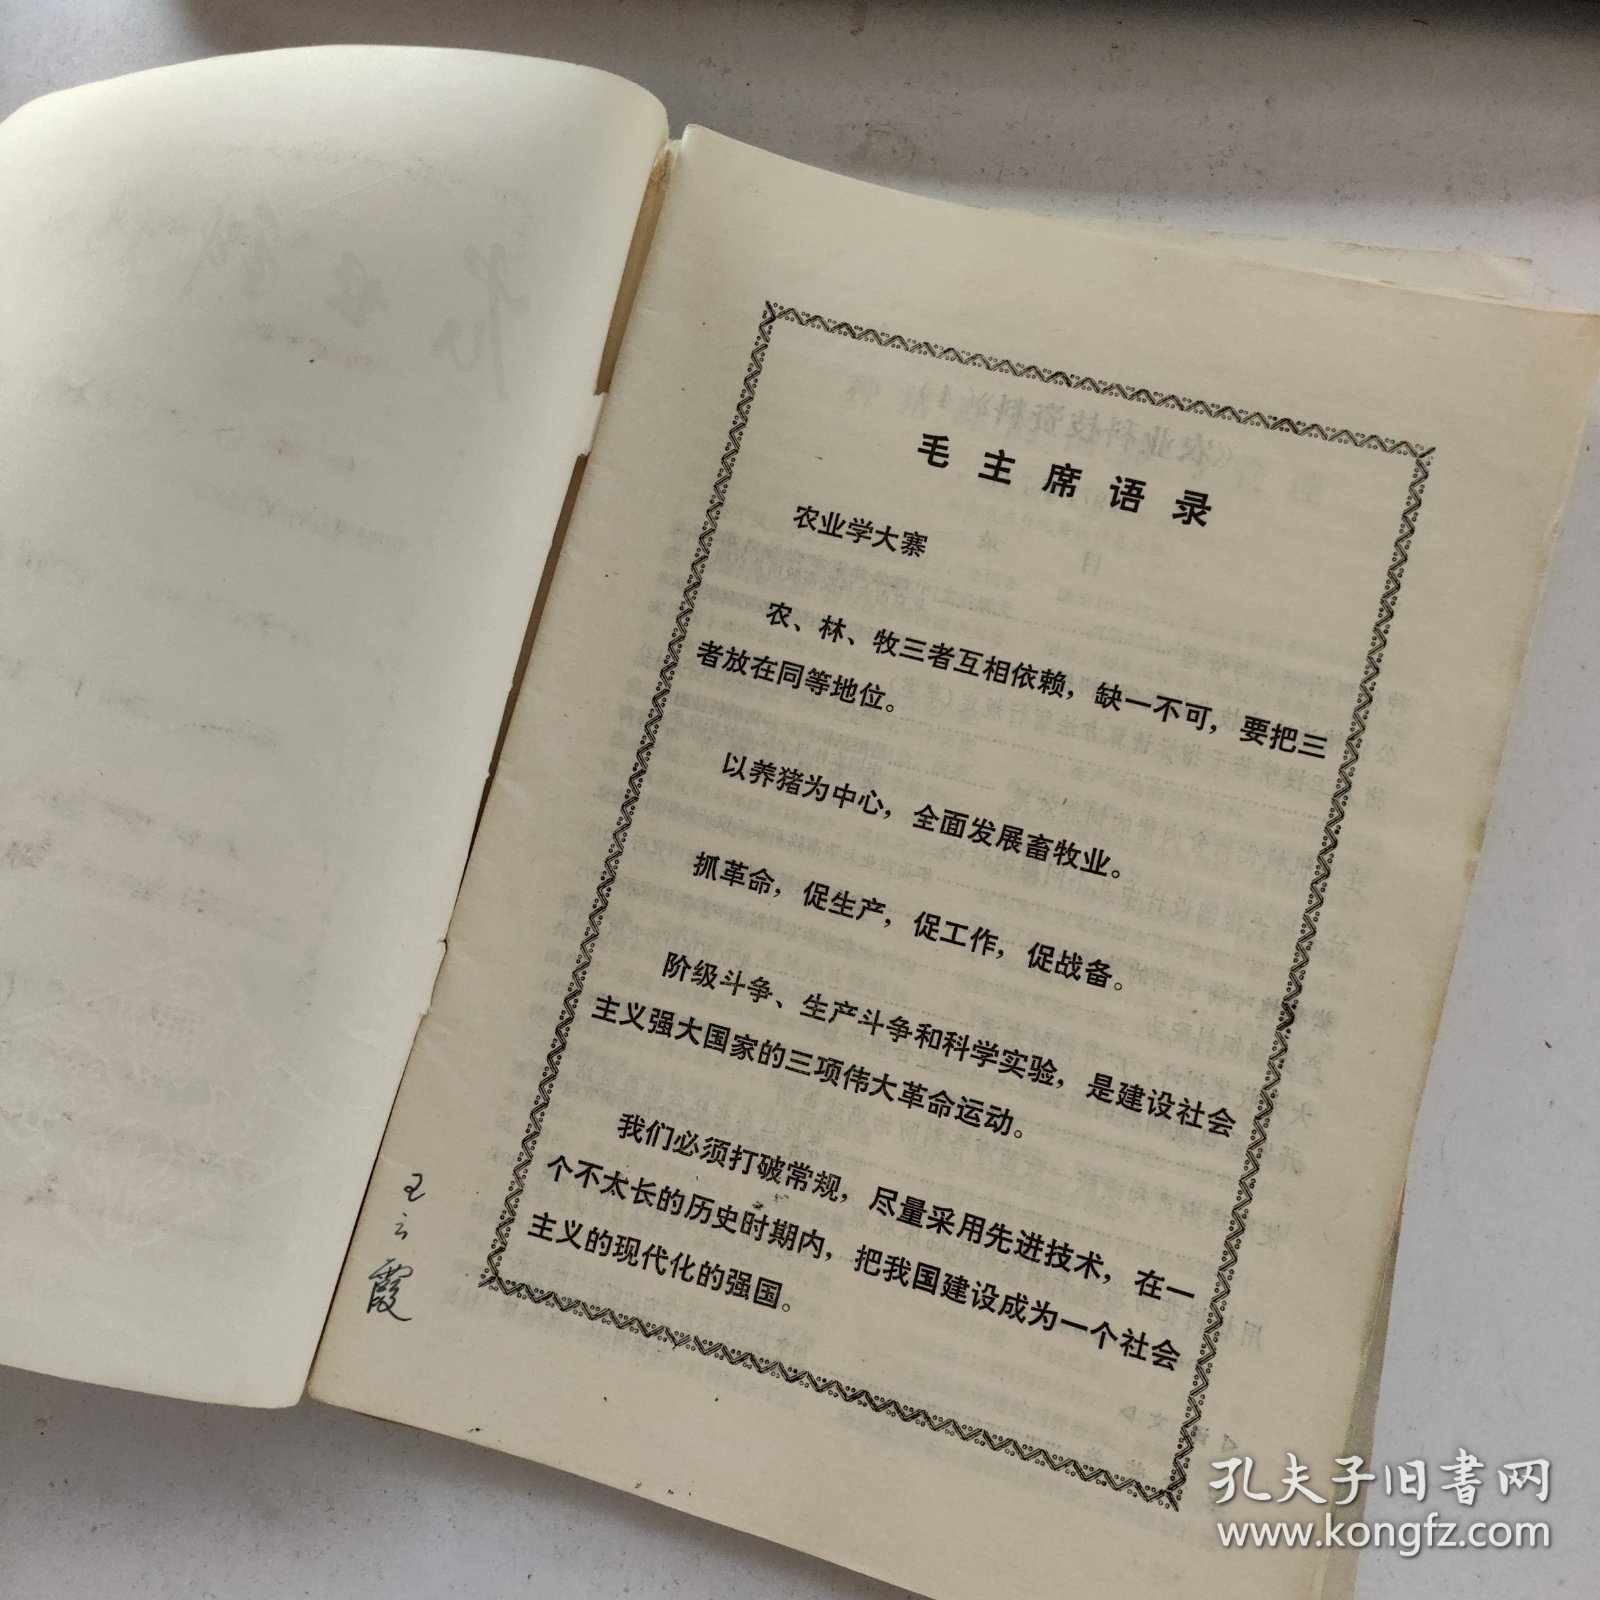 毛主席语录
农业学大寨
农、林、牧三者互相依赖，缺一不可，要把三
者放在同等地位。
以养猪为中心，全面发展畜牧业。
抓革命，促生产，促工作，促战备。
阶级斗争、生产斗争和科学实验，是建设社会
主义强大国家的三项伟大革命运动。
我们必须打破常规，尽量采用先进技术，在一
个不太长的历史时期内，把我国建设成为一个社会
主义的现代化的强国。
王云霞
孔夫子旧书网
www.kongfz.com